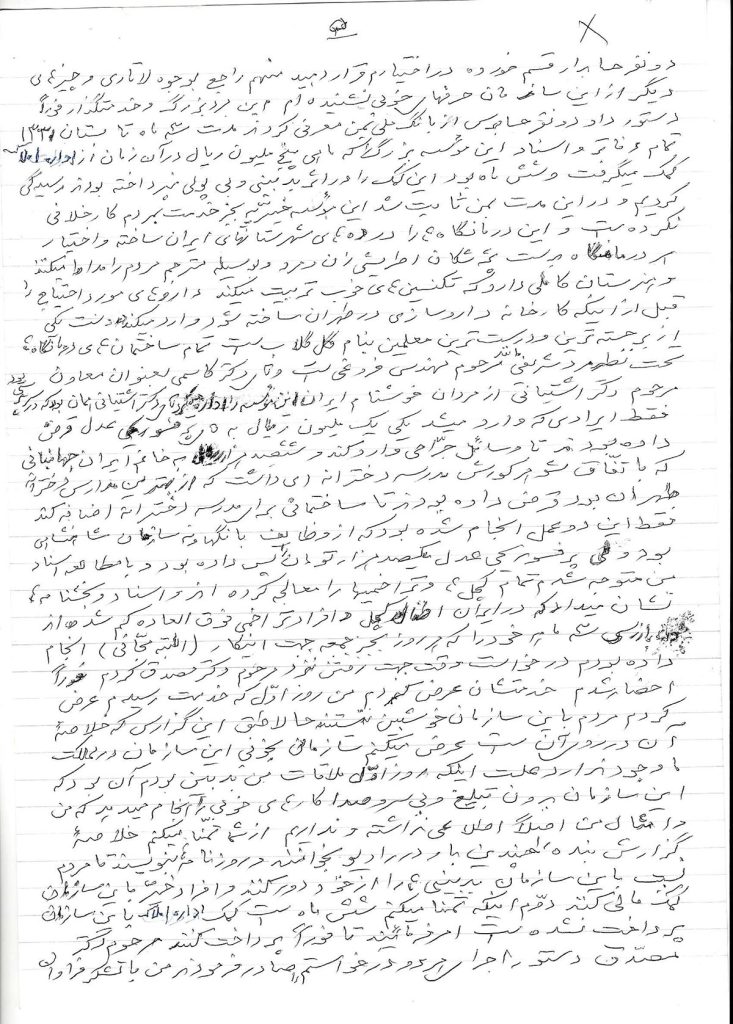 دو نفر حسابدار قسم خورده در اختیارم قرار دهید منهم راجع بوجوه لاتاری و چیزهای
دیگر از این سازمان حرفهای خوبی نشنیده ام این مرد بزرگ و خدمتگذار فوراً
دستور داد دو نفر حسابرس از بانک ملی بمن معرفی کردند مدت سه ماه تابستان ۱۳۳۱
تمام دفاتر و اسناد این مؤسسه بزرگ را که ماهی پنج ملیون ریال در آن زمان از اداره املاک
کمک میگرفت و شش ماه بود این کمک را در اثر بدبینی و بی پولی نپرداخته بودند رسیدگی
کردیم و در این مدت بمن ثابت شد این مؤسسه خیریه بجز خدمت بمردم کار خلافی
نکرده است و این درمانگاه ها را در ده های شهرستانهای ایران ساخته و اختیار
هر درمانگاه بدست پزشکان اطریشی زن و مرد و بوسیله مترجم مردم را مداوا میکنند
و هنرستان کاملی دارد که تکنسین های خوب تربیت میکند داروهای مورد احتیاج را
قبل از اینکه کارخانه داروسازی در طهران ساخته شود وارد میکند بدست یکی
از برجسته ترین و درست ترین معلمین بنام گل گلاب است تمام ساختمان های درمانگاه ها
تحت نظر مرد شریفی مانند مرحوم مهندس فروغی است و آقای دکتر کاسمی بعنوان معاون
مرحوم دکتر آشتیانی از مردان خوشنام ایران این مؤسسه را اداره
فقط ایرادی که وارد میشد یکی یک ملیون ریال به پرفسور عدل قرض
داده بودند تا وسائل جراحی وارد کند و ششصد هزار ریال به خانم ایران جهانبانی
که باتفاق شوهر کورش مدرسه دخترانه ای داشت که از بهترین مدارس دخترانه
طهران بود قرض داده بودند تا ساختمانی برای مدرسه دخترانه اضافه کند
فقط این دو عمل انجام شده بود که از وظایف بانکها و نه سازمان شاهنشاهی
بود ولی پرفسور عدل یکصد هزار تومان را پس داده بود و با مطالعه اسناد
من متوجه شدم تمام کچل ها و تراخمیها را معالجه کرده اند و اسناد و بخشنامه ها
نشان میداد که در ایران اطفال کچل و افراد تراخمی فوق العاده کم شده اند
بازرسی سه ماهه خود را که هر روز بجز جمعه جهت اینکار (البته مجانی) انجام
داده بودم درخواست وقت جهت رفتن نزد مرحوم دکتر مصدق کردم فوراً
احضار شدم خدمتشان عرض کردم من روز اول که خدمت رسیدم عرض
کردم مردم باین سازمان خوشبین نیستند حالا طبق این گزارش که خلاصه
آن در روی آن است عرض میکنم سازمانی بخوبی این سازمان در مملکت
ما وجود ندارد علت اینکه روز اول ملاقات من بدبین بودم آن بود که
این سازمان بدون تبلیغ و بی سر و صدا کارهای خوبی را انجام میدهد که من
و امثال من اصلاً اطلاعی نداشته و نداریم از شما تمنا میکنم خلاصه
گزارش بنده را چندین بار در رادیو بخوانند و روزنامه ها بنویسند تا مردم
نسبت باین سازمان بدبینی ها را از خود دور کنند و افراد خیر باین سازمان
کمک مالی کنند دوم اینکه تمنا میکنم شش ماه است کمک اداره املاک باین سازمان
پرداخت نشده است امر فرمائید تا فوراً پرداخت کنند مرحوم دکتر
مصدق دستور اجرای هر دو درخواستم را صادر فرمودند من با تشکر فراوان